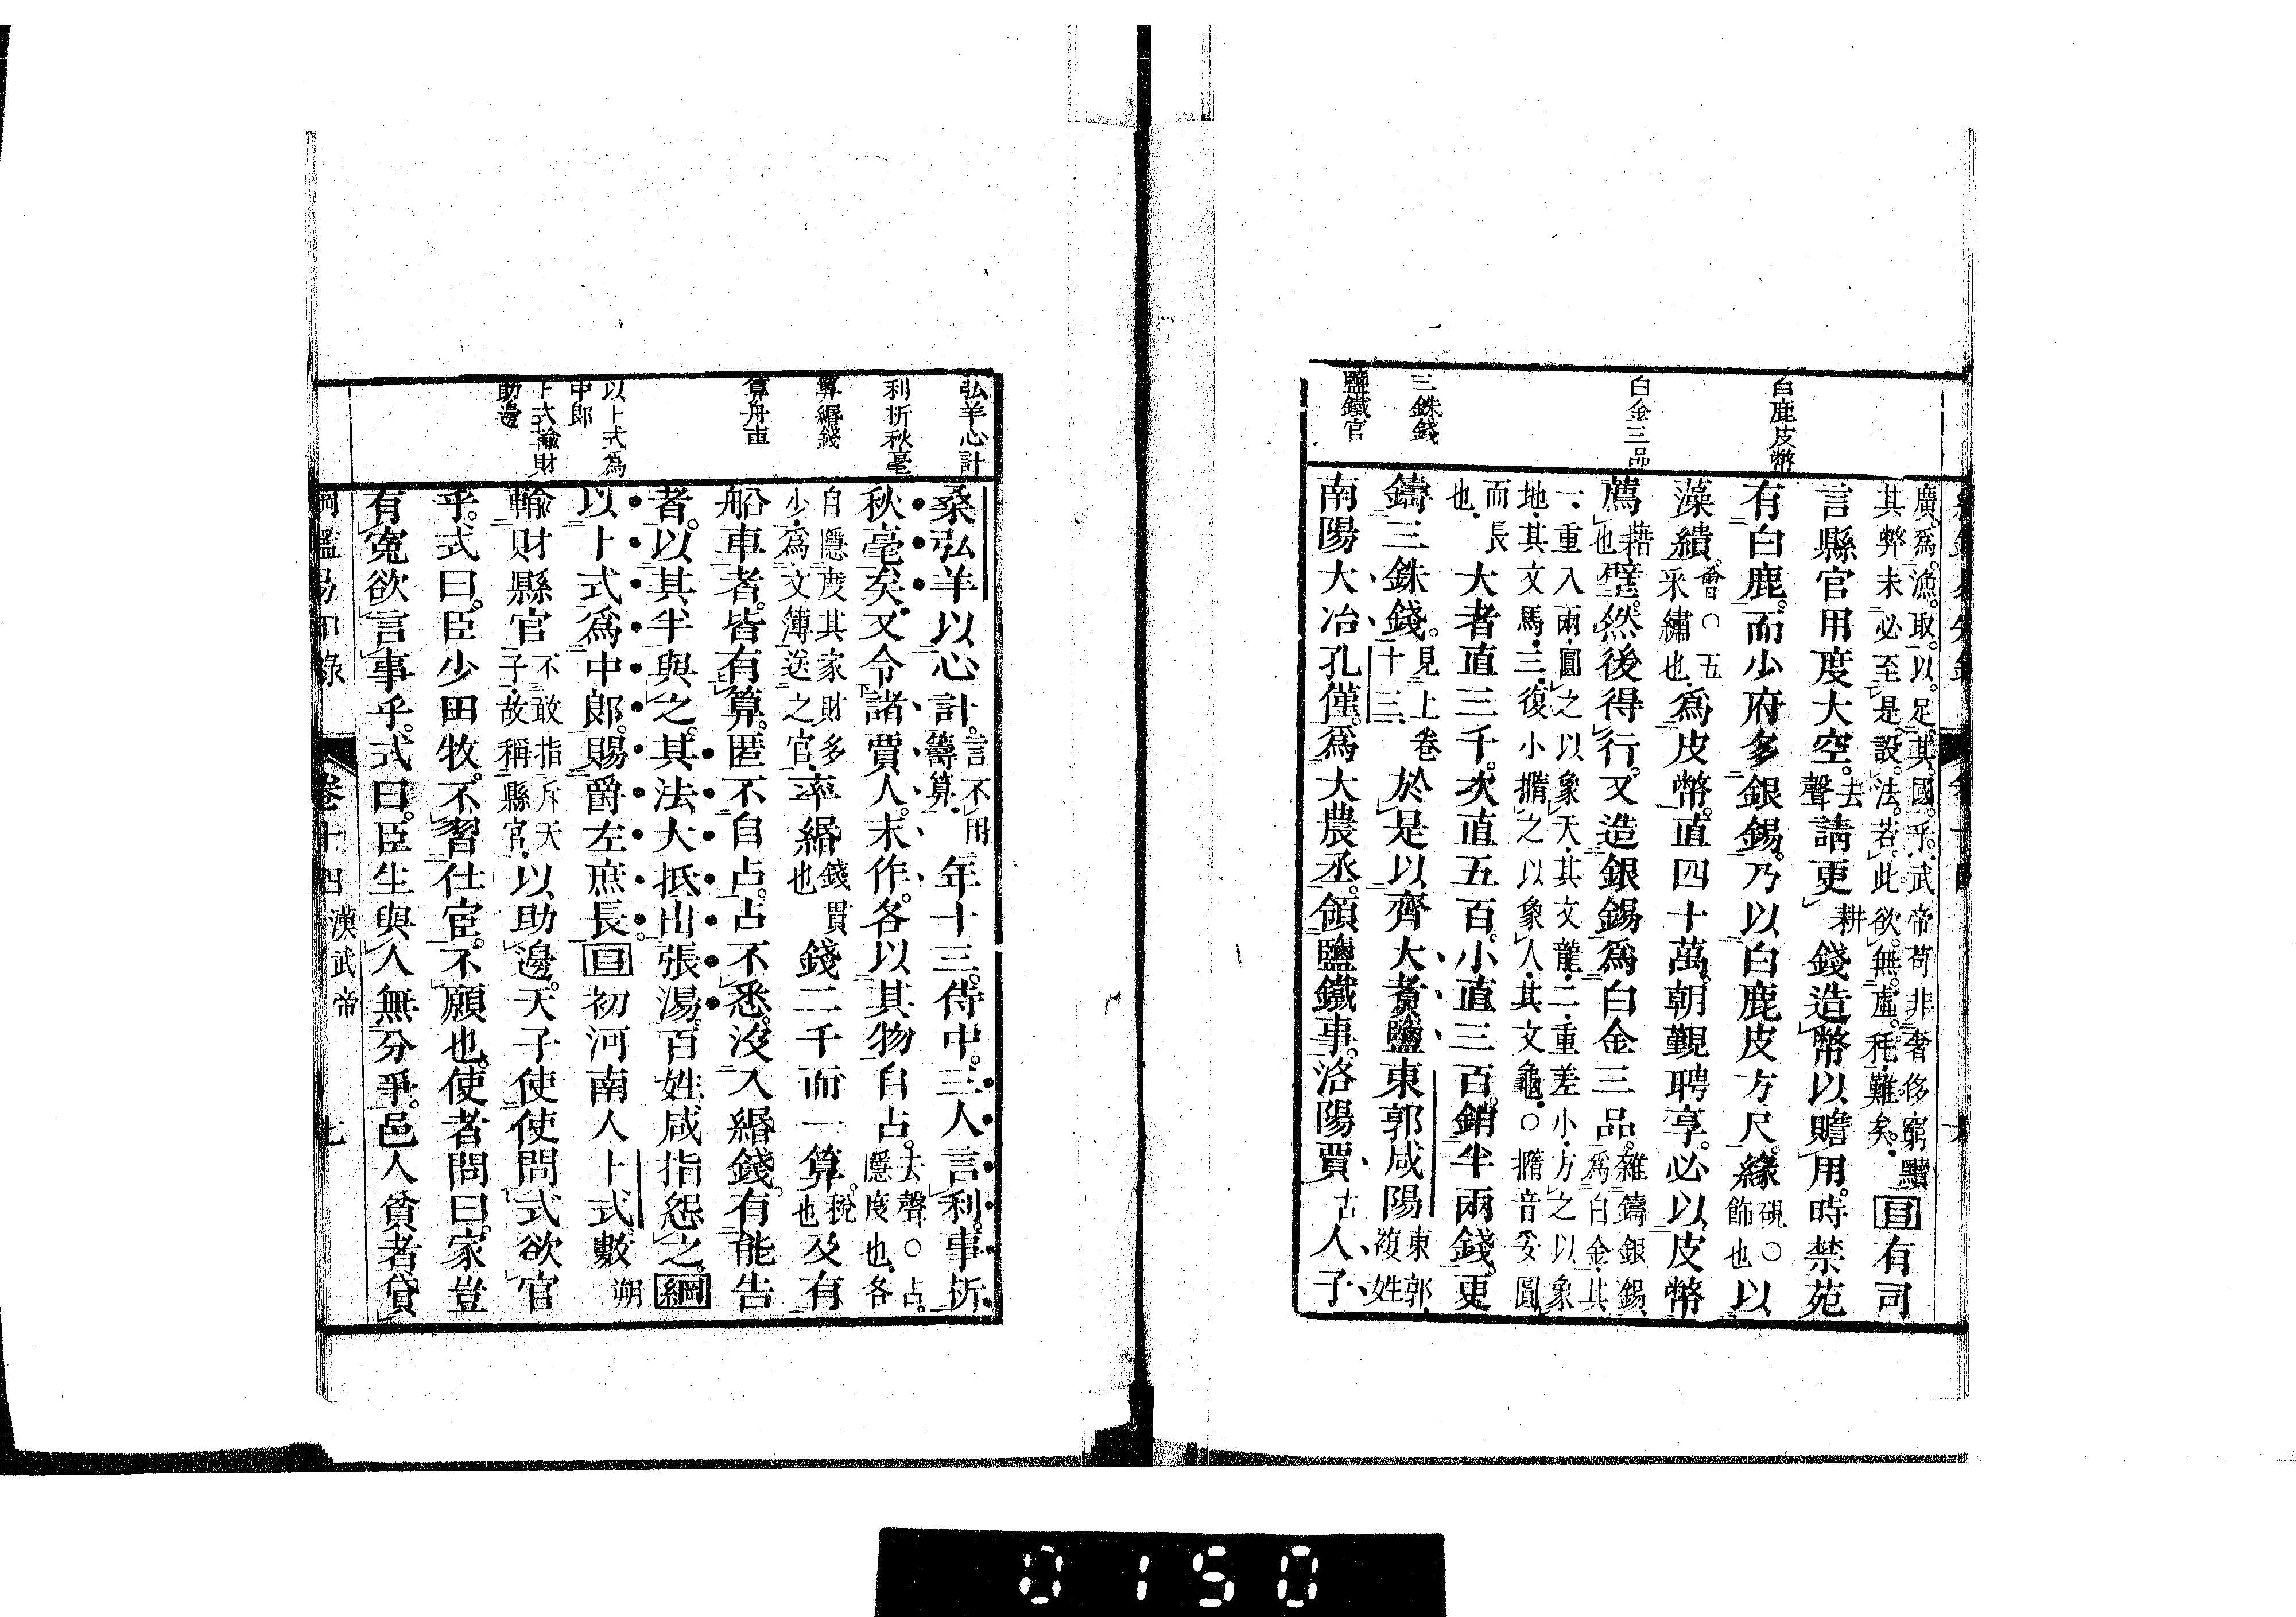 白鹿皮幣
白金三品
三銖錢
鹽鐵官
廣爲漁取以足其國乎武帝苟非奢侈窮黷
其弊未必至是設法若此欲無虛耗難矣
目有司
言縣官用度大空去聲請更耕錢造幣以贍用時禁苑
有白鹿而少府多銀錫乃以白鹿皮方尺緣硯○飾也以
藻繢會○五采繡也爲皮幣直四十萬朝覲聘享必以皮幣
薦藉也璧然後得行又造銀錫爲白金三品雜鑄銀錫爲白金其
一重八兩圓之以象天其文龍二重差小方之以象
地其文馬三復小撱之以象人其文龜○撱音妥圓
而長也大者直三千次直五百小直三百銷半兩錢更
鑄三銖錢見上卷十三於是以齊大煮鹽東郭咸陽東郭複姓
南陽大冶孔僅爲大農丞領鹽鐵事洛陽賈古人子
弘羊心計
利析秋毫
算緡錢
算舟車
以卜式爲中郎
卜式輸財助邊
桑弘羊以心計言不用籌算年十三侍中三人言利事析
秋毫矣又令諸賈人末作各以其物自占去聲○占隱度也各
自隱度其家財多少爲文簿送之官率緡錢貫也錢二千而一算稅也及有
船車者皆有算匿不自占占不悉沒入緡錢有能告
者以其半與之其法大抵出張湯百姓咸指怨之綱
以卜式爲中郎賜爵左庶長目初河南人卜式數朔
輸財縣官不敢指斥天子故稱縣官以助邊天子使使問式欲官
乎式曰臣少田牧不習仕宦不願也使者問曰家豈
有寃欲言事乎式曰臣生與人無分爭邑人貧者貸
綱鑑易知錄 卷十四 漢武帝 七